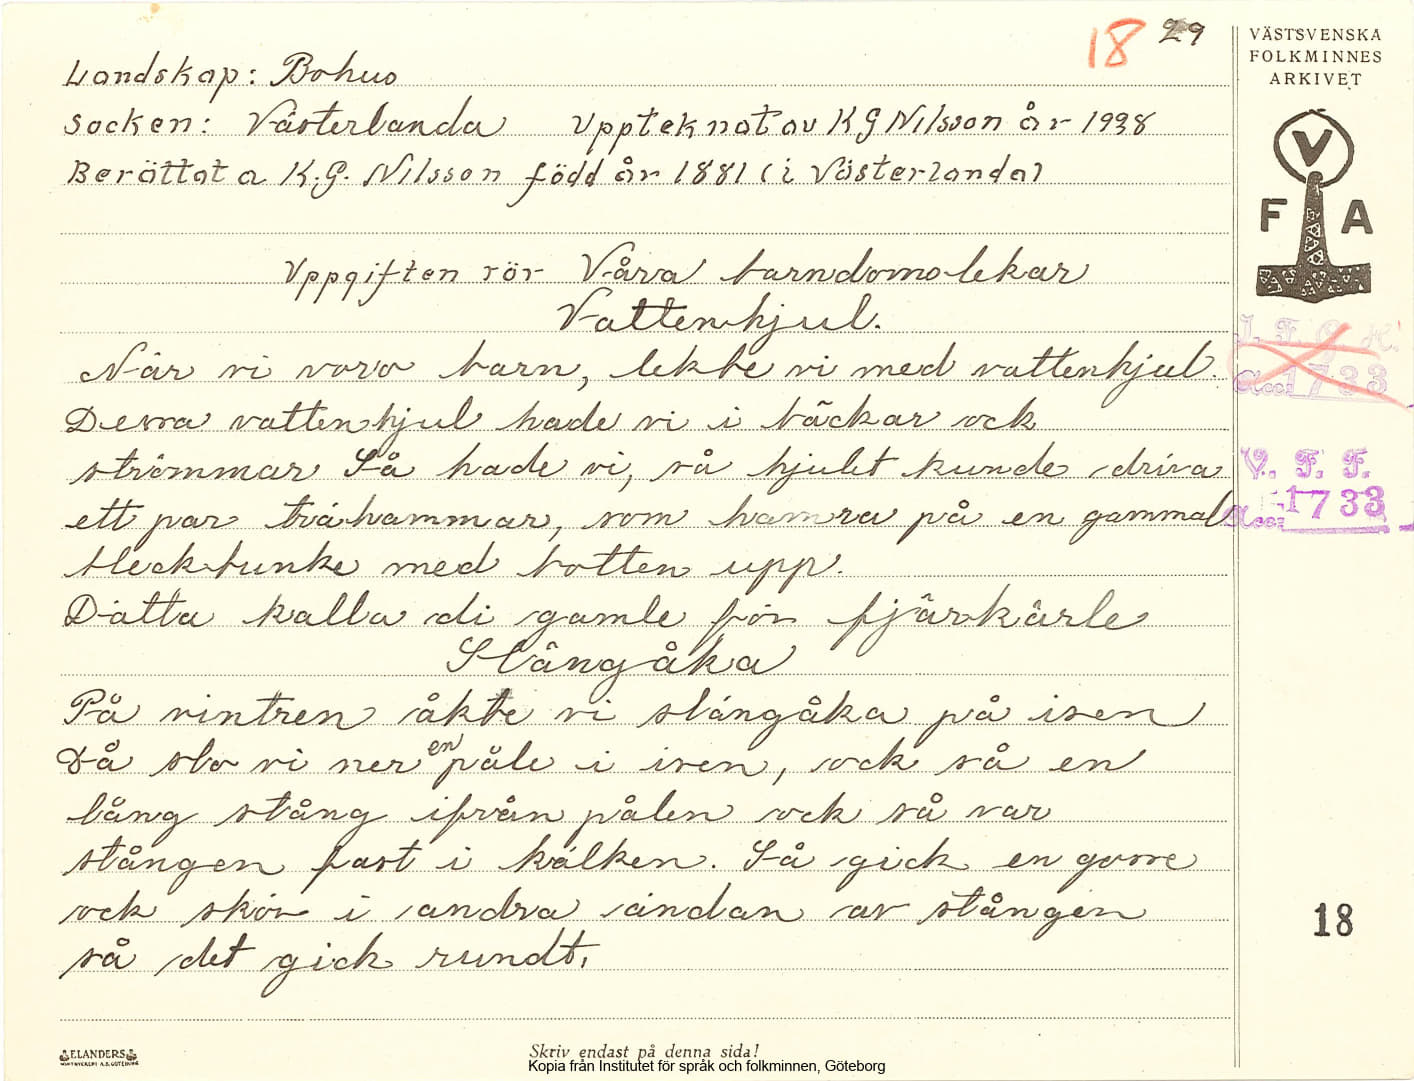 18 29
Landskap: Bohus
Socken: Västerlanda Uppteknat av K G Nilsson år 1938
Berättat a K. G. Nilsson född år 1881 (i Västerlanda)
Uppgiften rör Våra barndoms lekar
Vattenhjul.
När vi voro barn, lekte vi med vattenhjul.
Dessa vattenhjul hade vi i bäckar ock
strömmar Så hade vi, så hjulet kunde driva
ett par trähammar, som hamra på en gammal
bleckbunke med botten upp.
Dätta kalla di gamle för fjärkärle
Slängåka
På vintren åkte vi slängåka på isen
Då slo vi ner en påle i isen, ock så en
lång stång ifrån pålen ock så var
stången fast i kälken. Så gick en gosse
ock skör i andra ändan av stången
så det gick rundt.
VÄSTSVENSKA
FOLKMINNES
ARKIVET
V
F A
I. F. G. H.
Acc: 1733
V. F. F.
Acc: 1733
18
ELANDERS
Skriv endast på denna sida!
Kopia från Institutet för språk och folkminnen, Göteborg